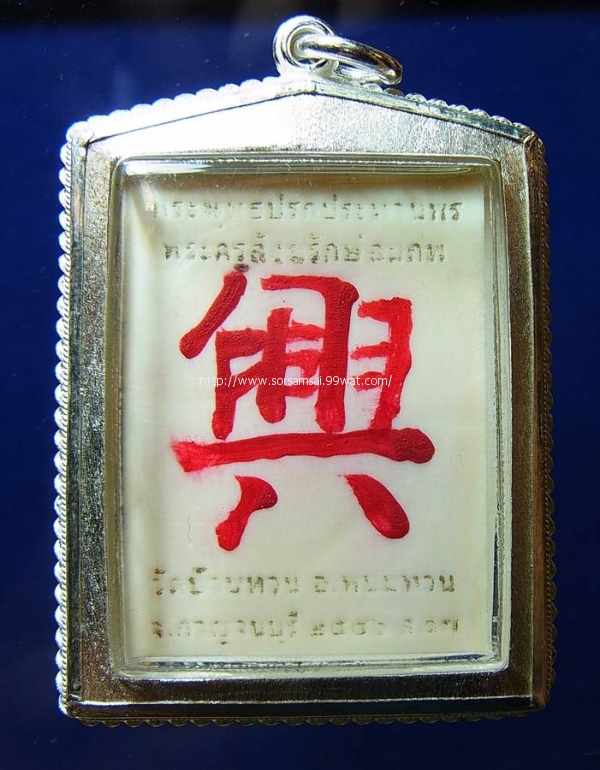 พระพุทธปรกประทานพร
พระครูสังฆรักษ์
興
http://www.sorsamsai.99wat.com/
วัดบ้านทวน อ.พนมทวน
จ.กาญจนบุรี